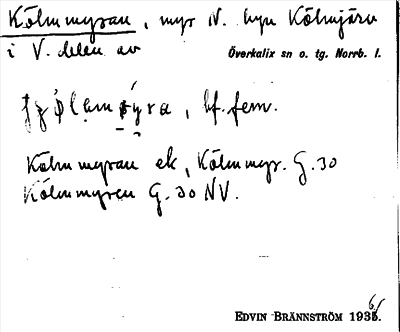 Kölmmyran, myr N. byn Kölmjärv
i V. delen av Överkalix sn o. tg. Norrb. l.
bf. fem.
Kölmmyran ek, Kölmmyr. G. 30
Kölmmyren G. 30 NV.
EDVIN BRÄNNSTRÖM 1936.